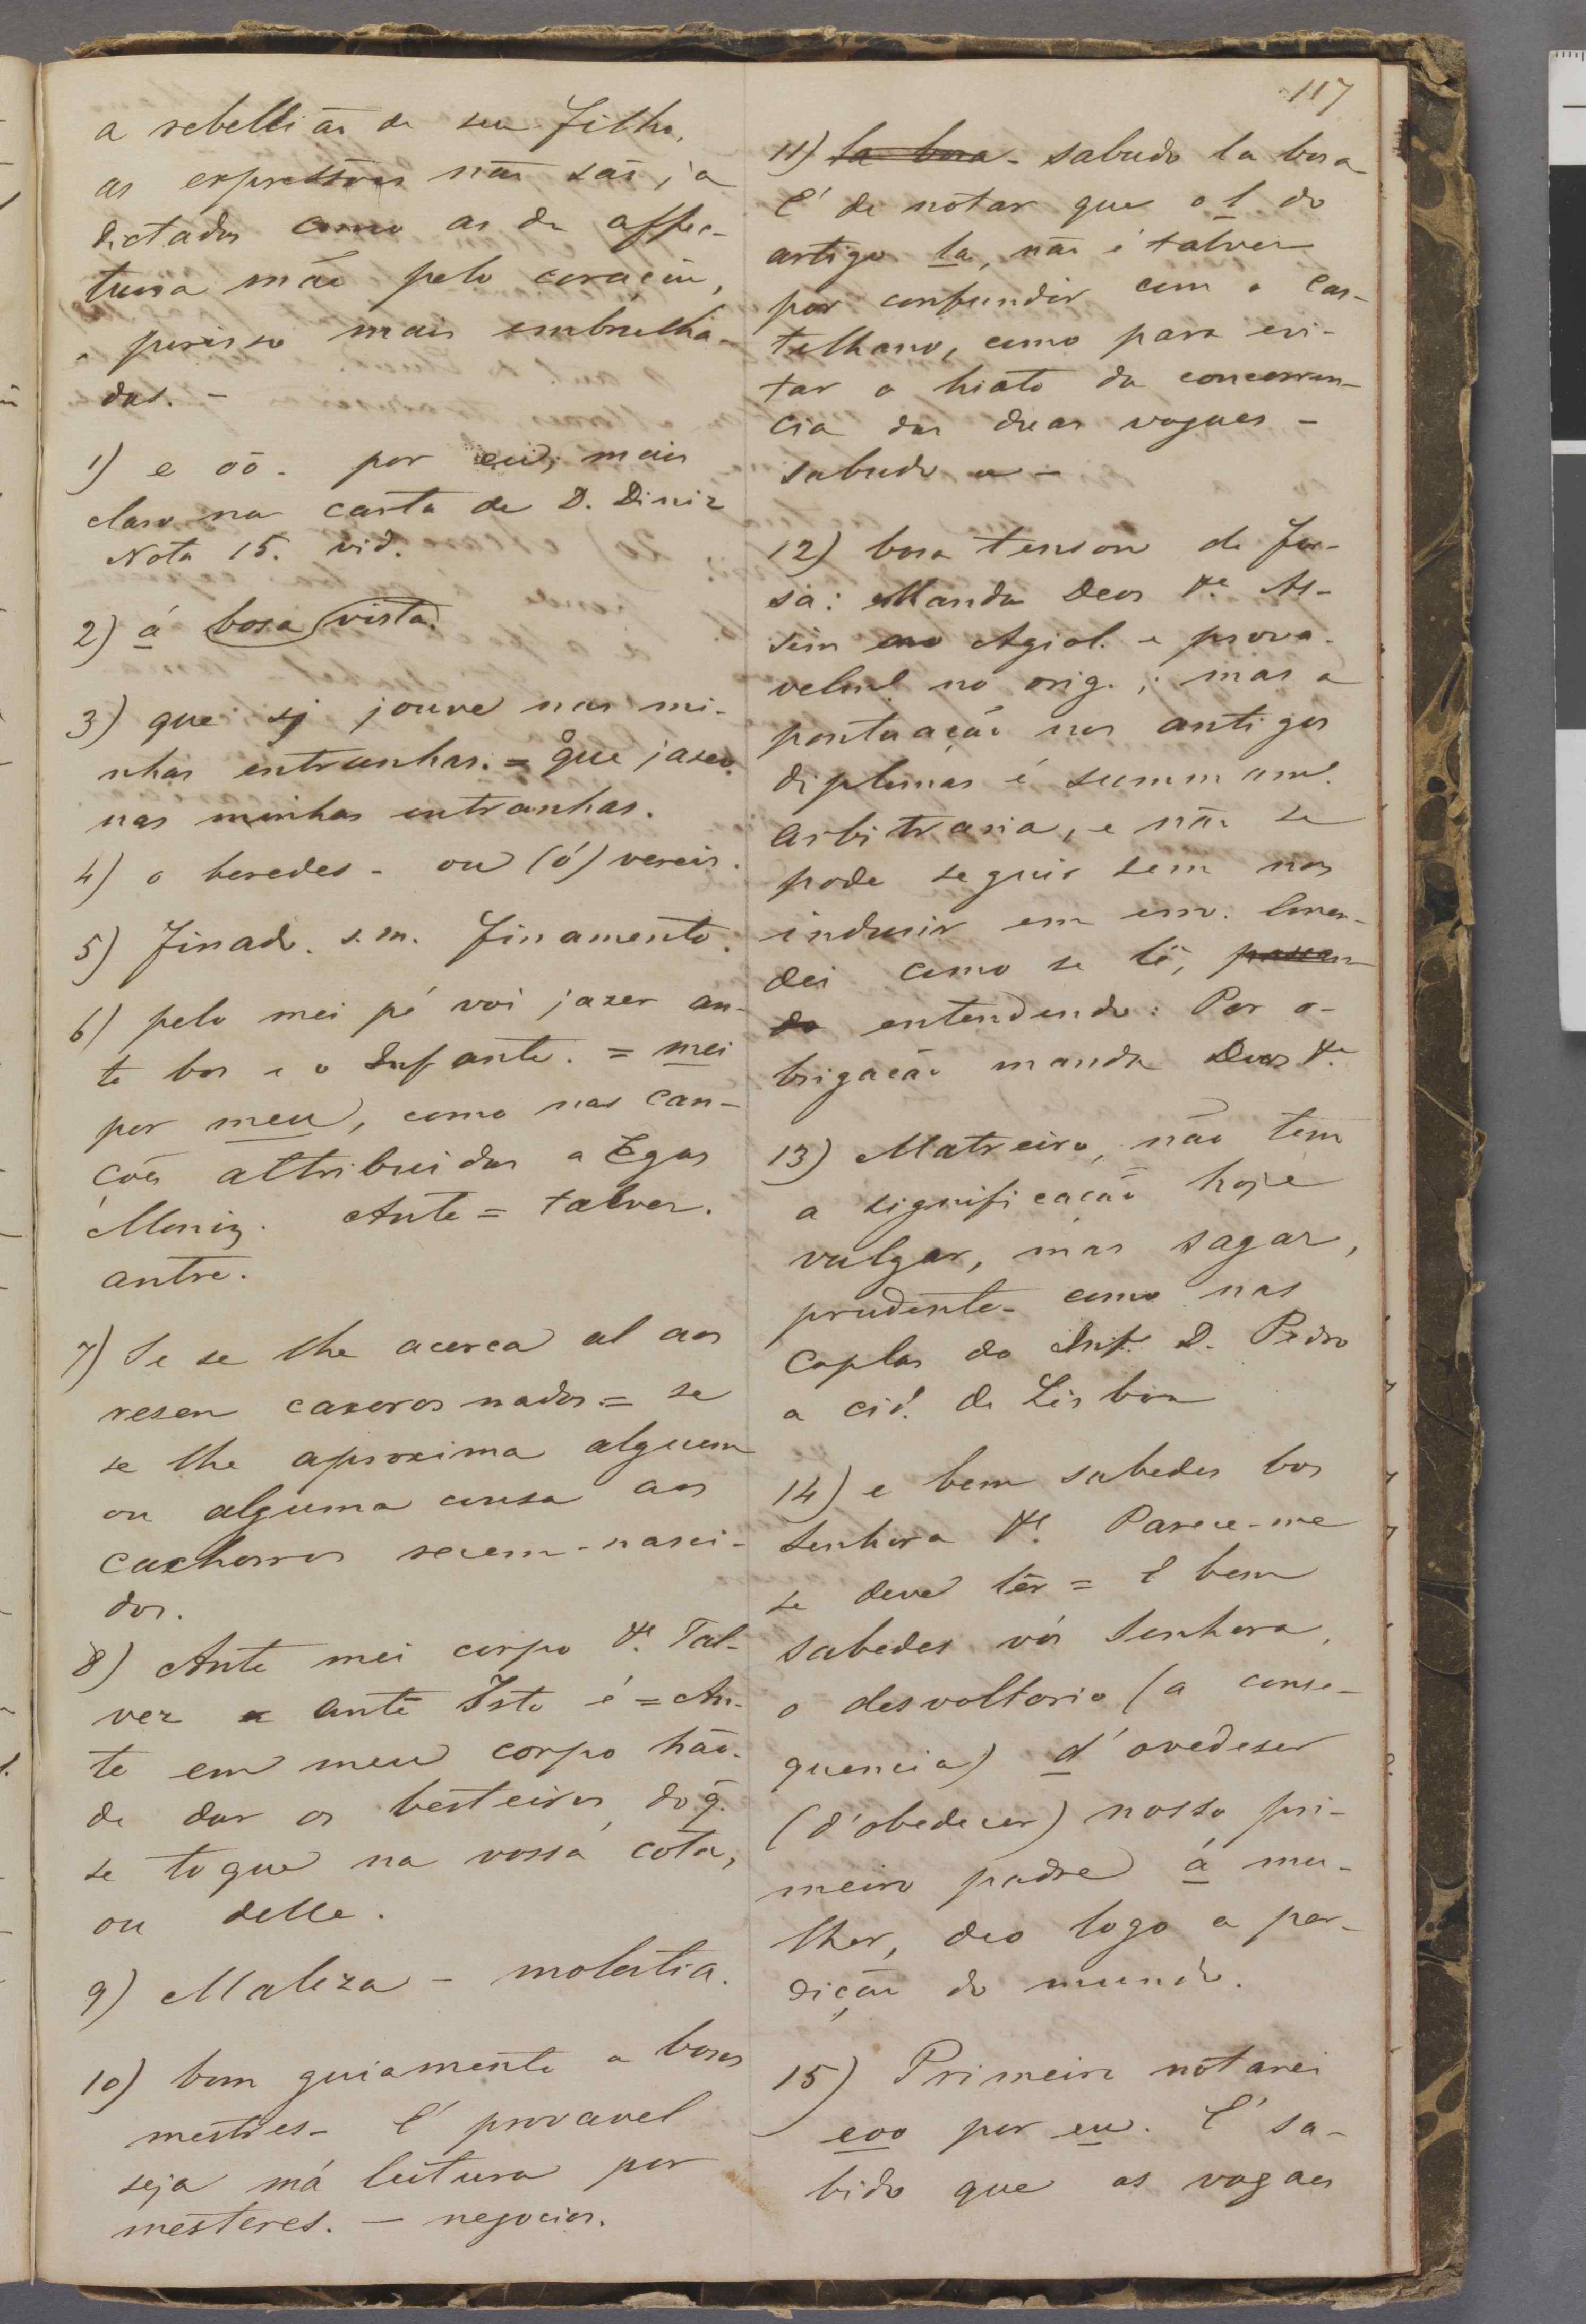 117
a rebellião de seu filho,
as expressões não são já
dictadas como as da affec-
tuosa mãe pelo coração,
e porisso mais embrulha-
das. -
1) e oõ. por eu, mais
claro na carta de D. Diniz
Nota 15. vid.
2) á bosa vista.
3) que sj jouve nas mi-
nhas entranhas. = que jazeo
nas minhas entranhas.
4) o beredes - ou (ó) vereis.
5) Finado. s.m. finamento.
6) pelo mei pé voi jazer an-
te bos e o Infante. = mei
por meu, como nas can-
ções attribuidas a Egas
Moniz. Ante = talvez.
antre.
7) Se se lhe acerca al aos
resen caxoros nados = se
se lhe aproxima alguem
ou alguma cousa aos
cachorros recem-nasci-
dos.
8) Ante mei corpo &. Tal-
vez antē Isto é = An-
te em meu corpo hão-
de dar os besteiros, do q̃
se toque na vossa cota,
ou delle.
9) Maleza - molestia.
10) bom guiamento a bosos
mestres - É provavel
seja má leitura por
mesteres. - negocios.
11) la bosa - sabudo la bosa
É de notar que o l do
artigo la, não é talvez
por confundir com o Cas-
telhano, como para evi-
tar o hiato da concorren-
cia das duas vogaes -
sabudo a -
12) bosa tenson de for-
sa: Manda Deos &. As-
sim no Agiol. e prova-
velmt. no orig.; mas a
pontuação nos antigos
diplomas é summamt.
arbitraria, e não se
pode seguir sem nos
induzir em erro. Emen-
dei como se lê, passan-
do entendendo: Por o-
brigação manda Deos &.
13) Matreiro, não tem
a significação hoje
vulgar, mas sagaz,
prudente - como nas
Coplas do Inf. D. Pedro
a cid. de Lisboa
14) e bem sabedes bos
Senhora &. Parece-me
se deve ler = E bem
sabedes vós Senhora,
o desvoltorio (a conse-
quencia) d'ovedeser
(d'obedecer) nosso pri-
meiro padre á mu-
lher, deo logo a per-
dição do mundo.
15) Primeiro notarei
eoo por eu. É sa-
bido que as vogaes